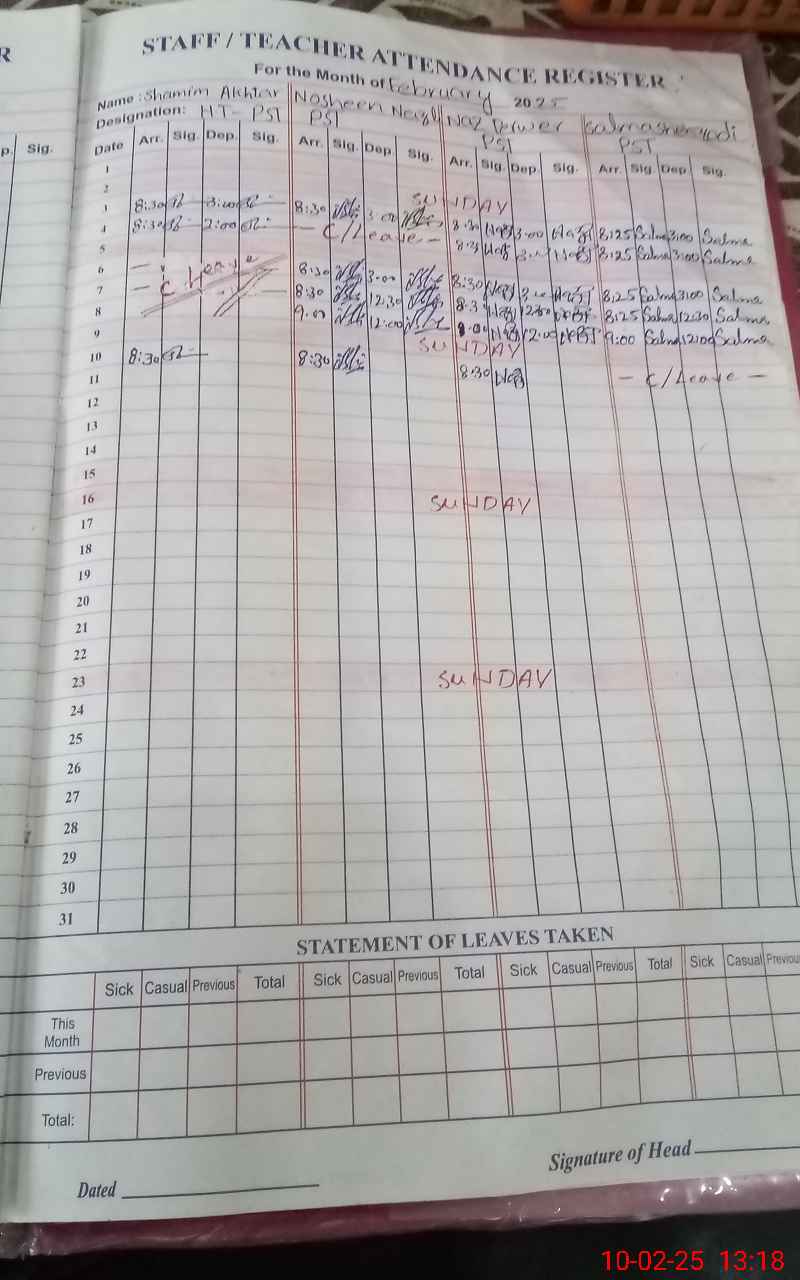 R
STAFF / TEACHER ATTENDANCE REGISTER
For the Month of February 2025
Name : Shamim Akhtar Nosheen Naz
Designation: HT- PST PST PST PST
p. Sig. Date Arr. Sig. Dep. Sig. Arr. Sig. Dep. Sig. Arr. Sig. Dep. Sig. Arr. Sig. Dep. Sig.
1
2 SUNDAY
3 8:30 3:00 8:30 3:00 8:30 Naz 3:00 Naz 8:25 Salma 3:00 Salma
4 8:30 2:00 - C/Leave - 8:3 Naz Naz 8:25 Salma 3:00 Salma
5
6 8:30 3:00 8:30 Naz Naz 8:25 Salma 3:00 Salma
7 - C Leave - 8:30 12:30 8:3 Naz 12:30 8:25 Salma 12:30 Salma
8 9:00 12:00 9:00 Naz 12:00 9:00 Salma 12:00 Salma
9 SUNDAY
10 8:30 8:30 8:30 Naz - C/Leave -
11
12
13
14
15
16 SUNDAY
17
18
19
20
21
22
23 SUNDAY
24
25
26
27
28
29
30
31
STATEMENT OF LEAVES TAKEN
Sick Casual Previous Total Sick Casual Previous Total Sick Casual Previous Total Sick Casual Previou
This
Month
Previous
Total:
Signature of Head
Dated
10-02-25 13:18